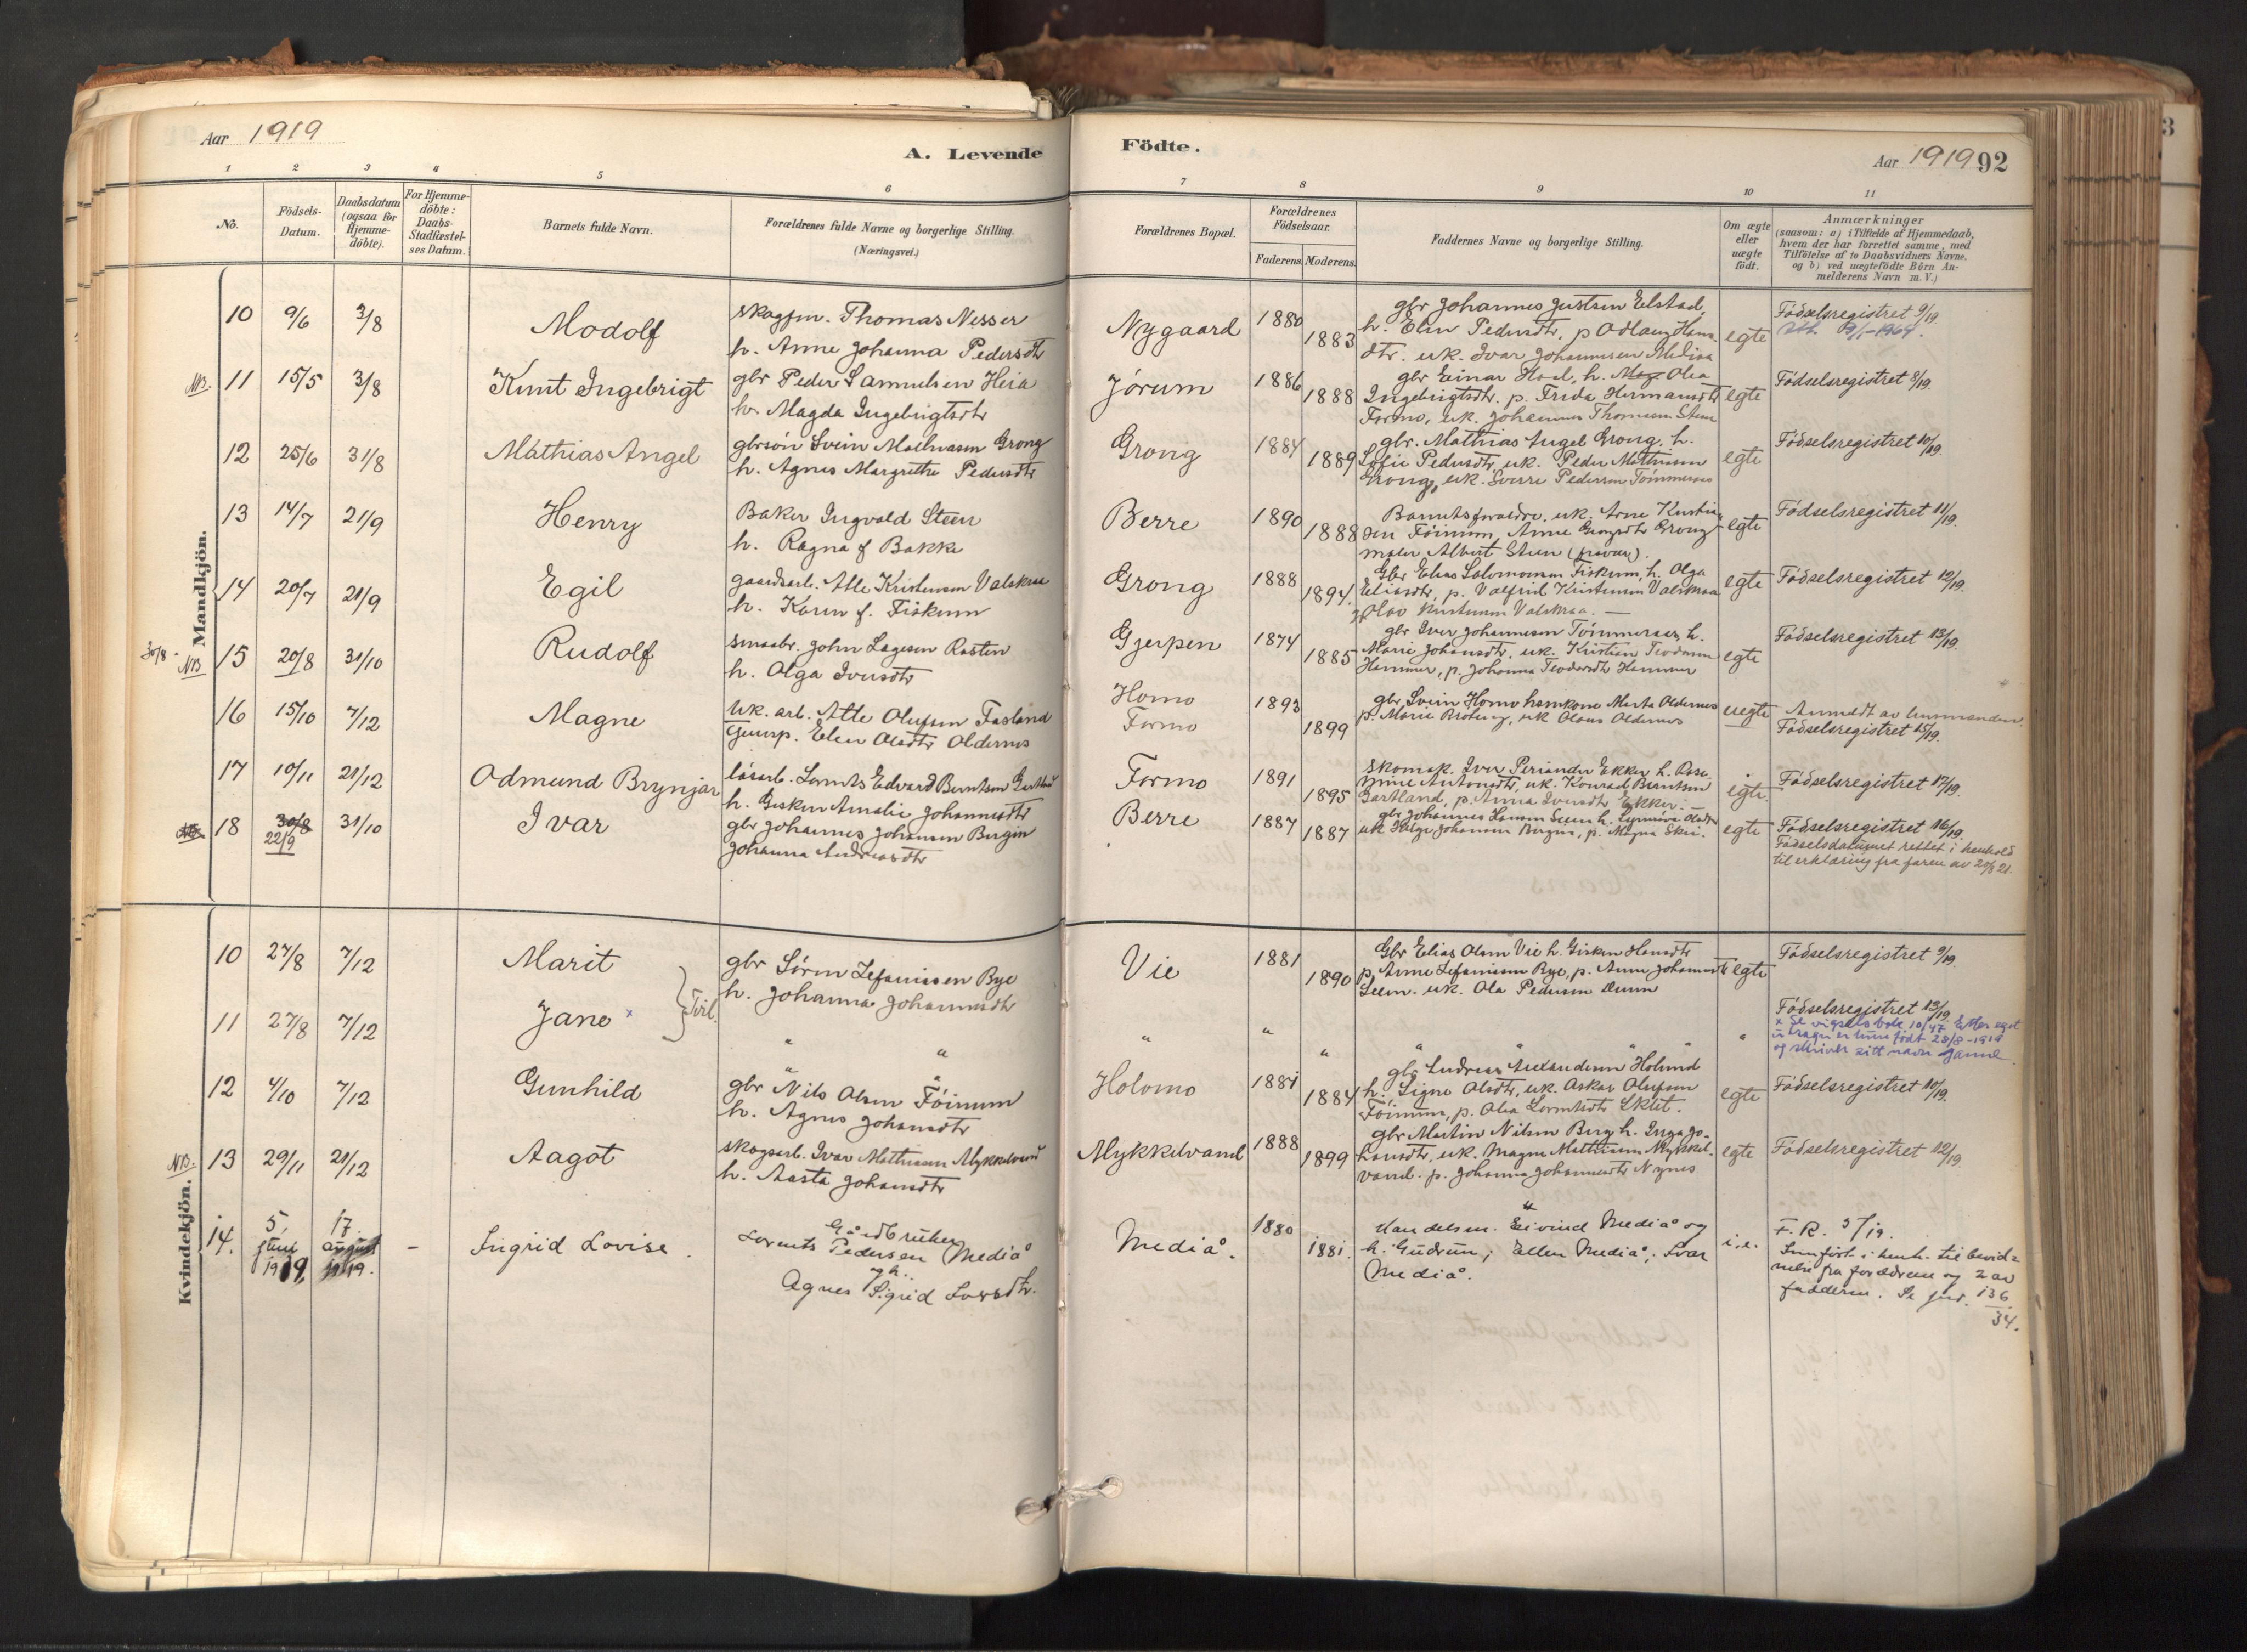 Aar 1919
A. Levende
Födte.
Aar 1919 92
3
1 2 3 4 5 6 7 8 9 10 11
No.
Födsels-
Datum.
Daabsdatum
(ogsaa for
Hjemme-
döbte).
For Hjemme-
döbte:
Daabs-
Stadfæstel-
ses Datum.
Barnets fulde Navn.
Forældrenes fulde Navne og borgerlige Stilling.
(Næringsvei.)
Forældrenes Bopæl.
Forældrenes
Födselsaar.
Faderens. Moderens.
Faddernes Navne og borgerlige Stilling.
Om ægte
eller
uægte
födt.
Anmærkninger
(saasom: a) i Tilfælde af Hjemmedaab,
hvem der har forrettet samme, med
Tilföielse af to Daabsvidners Navne.
og b) ved uægtefödte Börn An-
melderens Navn m. V.)
Mandkjön.
10 9/6 3/8 Modolf
skogfm. Thomas Nesser
h. Anne Johanna Pedersdtr
Nygaard 1880 1883
gbr Johannes Justsen Elstad,
h. Elen Pedersdtr, p Odlaug Hans-
dtr. uk. Ivar Johannesen Mediaa
egte
Födselsregistret 9/19.
NB. 11 15/5 3/8 Knut Ingebrigt
gbr Peder Samuelsen Heia
h. Magda Ingebrigtsdtr
Jörum 1886 1888
gbr Einar Hoel, h. Olea
Ingebrigtsdtr. p. Frida Hermansdtr
Formo, uk. Johannes Thomesen Steen
egte
Födselsregistret 8/19.
12 25/6 31/8 Mathias Angel
gbrsön Svein Mathiasen Grong
h. Agnes Margrethe Pedersdtr
Grong 1884 1889
gbr. Mathias Angel Grong, h.
Sofie Pedersdtr, uk. Peder Mathiasen
Grong, uk. Sverre Pedersen Tömmeraas
egte
Födselsregistret 10/19.
13 14/7 21/9 Henry
Baker Ingvald Steen
h. Ragna f Bakke
Berre 1890 1888
Barnets foreldre, uk. Arne Kristian-
sen Föinum, Anne Georgsdtr Grong
maler Albert Steen (fravær).
egte
Födselsregistret 11/19.
14 20/7 21/9 Egil
gaardsarb. Atle Kristensen Valskraa
h. Karen f. Fiskum
Grong 1888 1894.
Gbr Elias Salomonsen Fiskum, h. Olga
Eliasdtr, p. Valfrid Kristensen Valskraa
g Olav Kristensen Valskraa. —
egte
Födselsregistret 12/19.
30/8 - NB 15 20/8 31/10 Rudolf
smaabr. John Lagesen Rosten
h. Olga Iversdtr
Gjerpen 1874 1885
gbr Iver Johannesen Tömmeraas, h.
Marie Johansdtr, uk. Kristian Teodorsen
Hammer, p. Johanna Teodorsdtr Hammer
egte
Födselsregistret 13/19.
16 15/10 7/12 Magne
Uk. arb. Atle Olufsen Fasland
Gjensp. Elen Olsdtr Oldernes
Homo
Formo
1893 1899
gbr Svein Homo hans kone Marta Oldernes
p. Marie Broberg, uk Olaus Oldernes
uegte
Anmeldt av
Födselsregistret 15/19.
17 10/11 21/12 Odmund Brynjar
lösarb. Lornts Edvard Berntsen Gartland
h. Gisken Amalie Johannesdtr
Formo 1891 1895
skomak. Iver Periander Ekker h. Ose-
mine Antonsdtr, uk. Konrad Berntsen
Gartland, p. Anna Iversdtr Ekker. —
egte.
Födselsregistret 17/19.
18 30/8 31/10 Ivar
22/9
gbr Johannes Johansen Bergin
Johanna Andreasdtr
Berre 1887 1887
gbr Johannes Hansen Seem h. Synnöve Olsdtr
uk Helge Johansen Bergin, p. Magna Skei.
egte
Födselsregistret 16/19.
Födselsdatumet rettet i henhold
til erklæring fra faren av 20/8 21.
Kvindekjön.
10 27/8 7/12 Marit
gbr Sören Zefaniasen Bye
h. Johanna Johannesdtr
Vie 1881 1890
Gbr Elias Olsen Vie h. Gisken Hansdtr
p. Anne Zefaniasen Bye, p. Anna Johannesdtr
Seem. uk. Ola Pedersen Duun
egte
Födselsregistret 9/19.
Tvil.
11 27/8 7/12 Jane x
" " " " " " "
Födselsregistret 13/19
x Se vigselsbok 10/47. Etter eget
utsagn er hun födt 28/8-1919
og skriver sitt navn Janne.
12 4/10 7/12 Gunhild
gbr Nils Olsen Föinum
h. Agnes Johansdtr
Holomo 1881 1884
gbr Andreas Alexandersen Holmo
h. Signe Olsdtr, uk. Oskar Olufsen
Föinum, p. Olea Lorntsdtr Eklet.
egte
Födselsregistret 10/19.
NB. 13 29/11 21/12 Aagot
skogsarb. Ivar Mathiasen Mykkelvand
h. Aasta Johansdtr
Mykkelvand 1888 1899
gbr Martin Nilsen Berg h. Inga Jo-
hansdtr, uk. Magne Mathiasen Mykkel-
vand. p. Johanna Johannesdtr Nynes
egte
Födselsregistret 12/19
14. 5. juni 1919. 17. august 1919. - Ingrid Lovise.
Gårdbruker
Lorents Pedersen Mediå
og h.
Agnes Sigrid Larsdtr.
Mediå. 1880 1881.
Handelsm. Eivind Mediå og
h. Gudrun; Ellen Mediå; Ivar
Mediå.
i.e.
F. R. 5/19.
Innfört i henh. til bevid-
nelse fra foreldrene og 2 av
fadderne. Se jnr. 136
34.